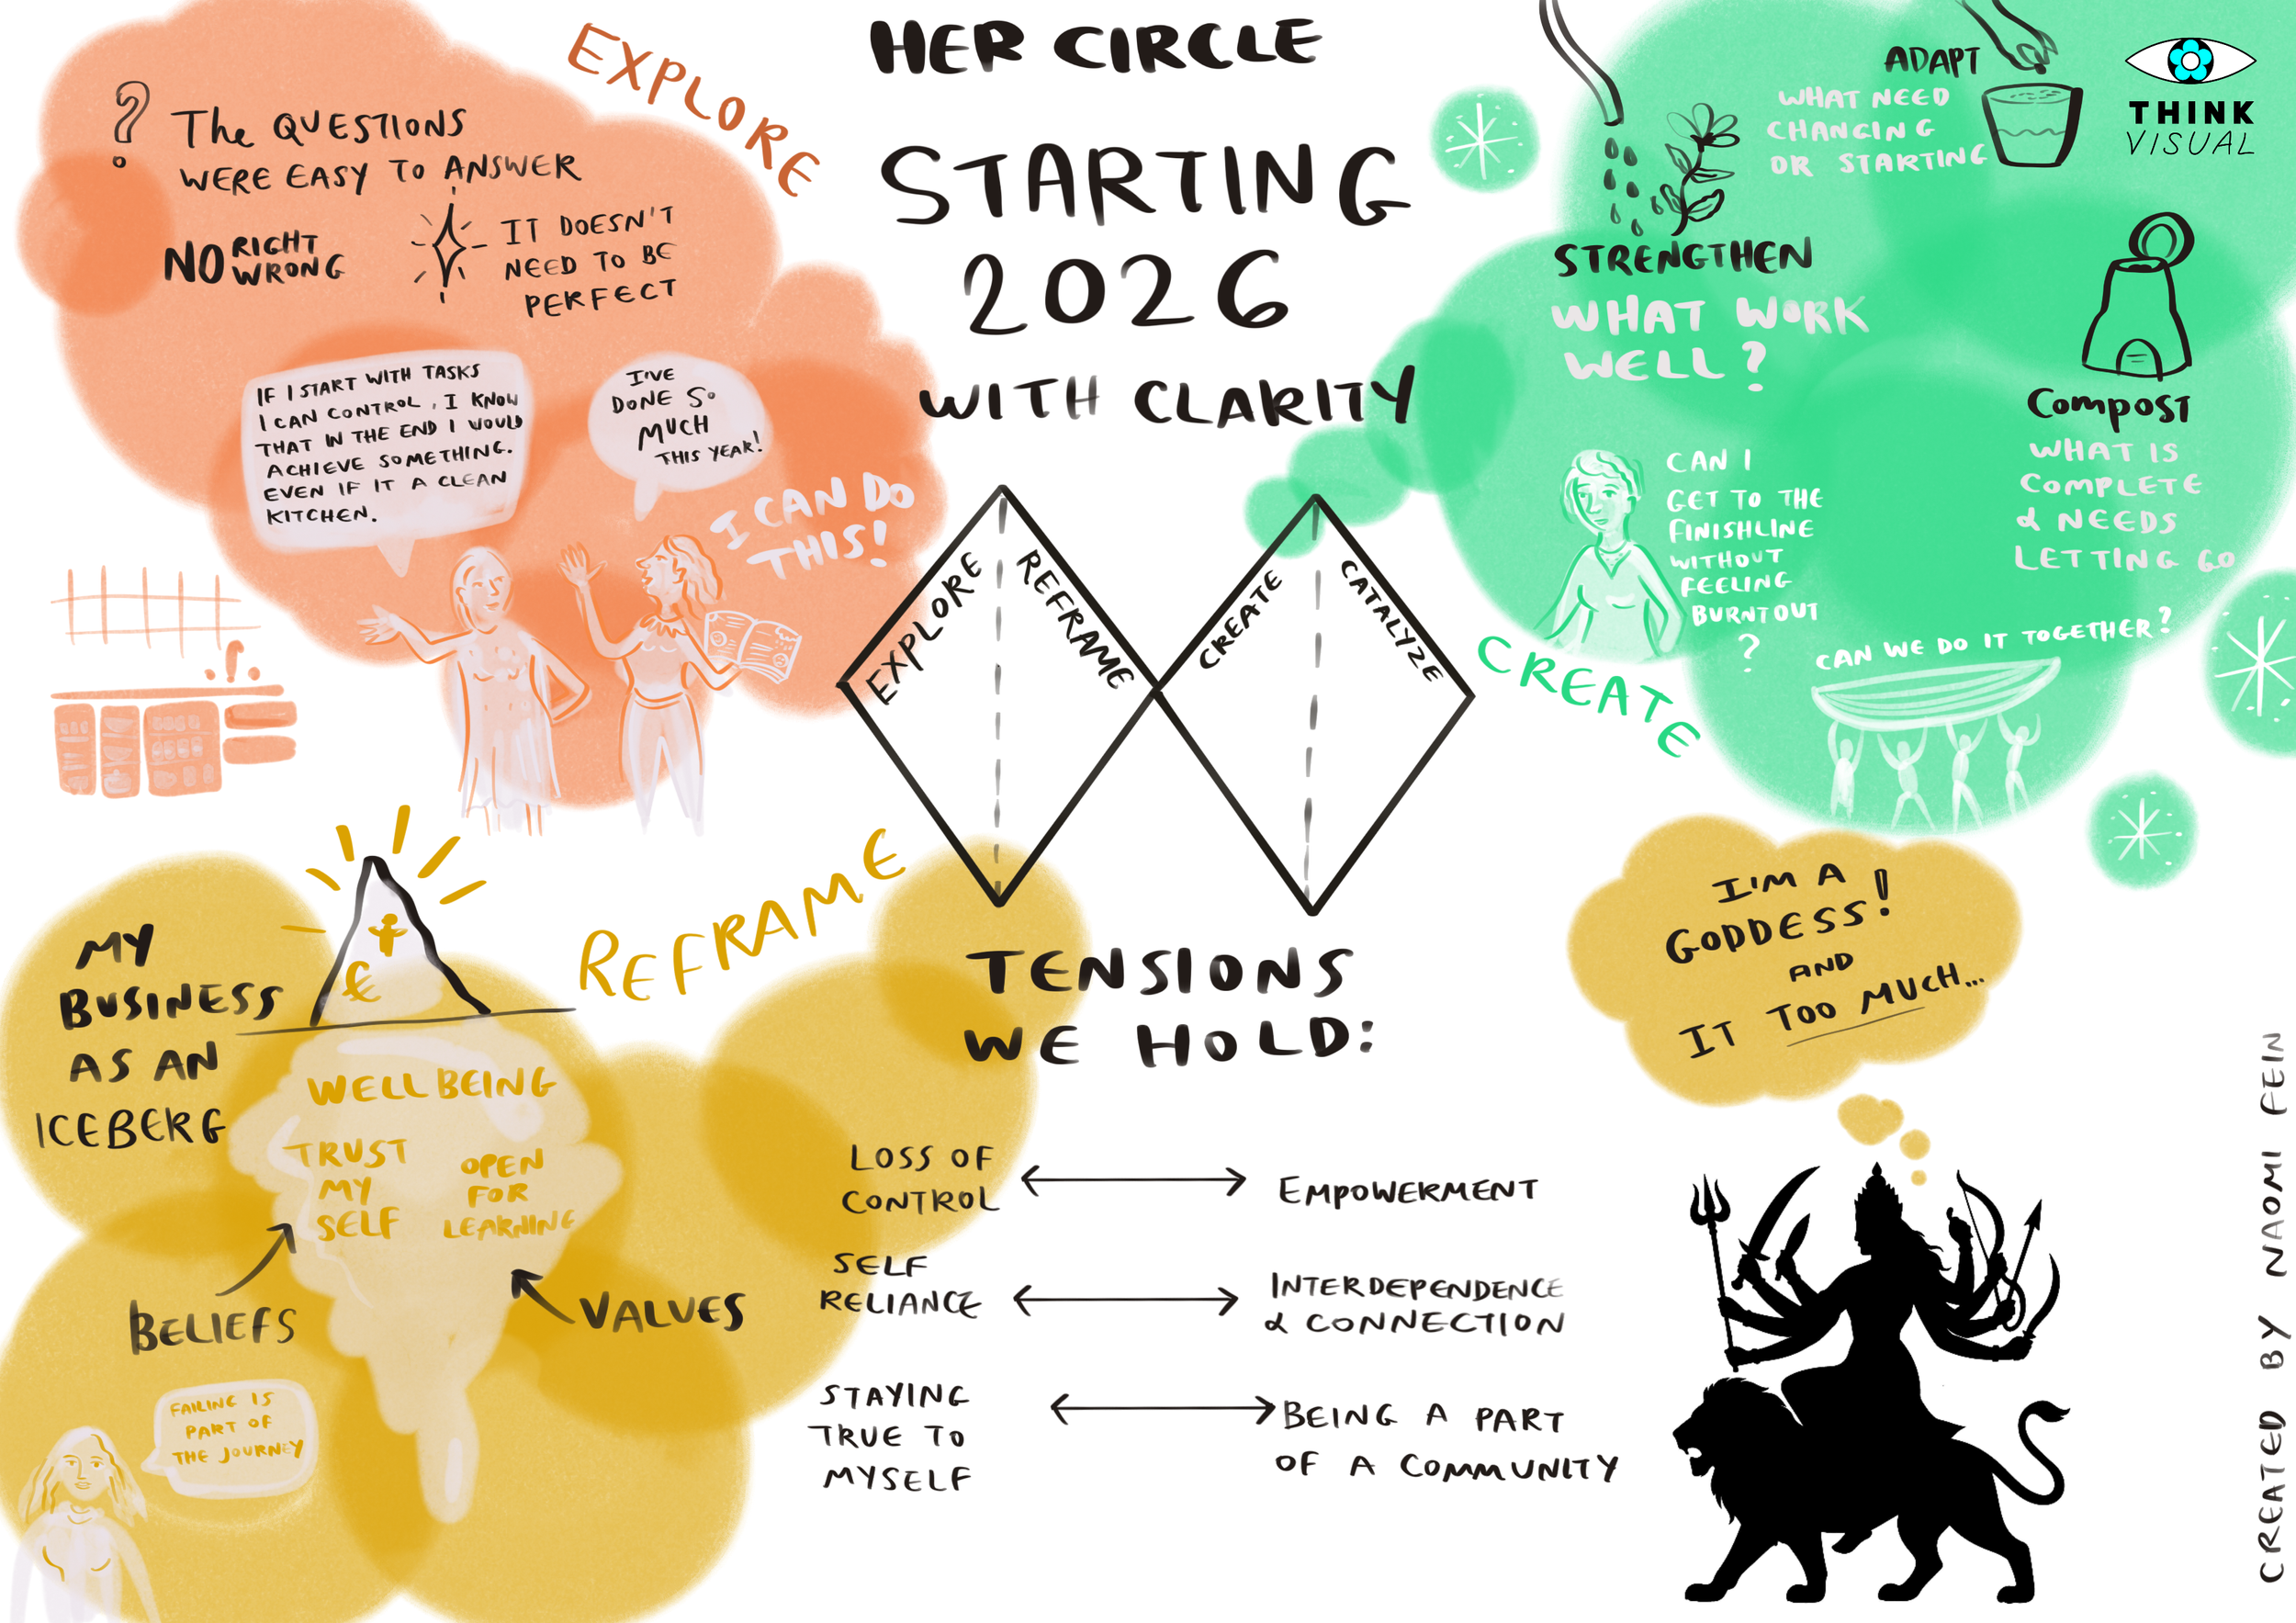 HER CIRCLE
STARTING
2026
WITH CLARITY
EXPLORE
?
The QUESTIONS
WERE EASY TO ANSWER
NO RIGHT
WRONG
IT DOESN'T
NEED TO BE
PERFECT
IF I START WITH TASKS
I CAN CONTROL, I KNOW
THAT IN THE END I WOULD
ACHIEVE SOMETHING.
EVEN IF IT A CLEAN
KITCHEN.
I'VE
DONE SO
MUCH
THIS YEAR!
I CAN DO
THIS!
EXPLORE
REFRAME
CREATE
CATALYZE
ADAPT
WHAT NEED
CHANGING
OR STARTING
THINK
VISUAL
STRENGTHEN
WHAT WORK
WELL?
COMPOST
WHAT IS
COMPLETE
& NEEDS
LETTING GO
CAN I
GET TO THE
FINISHLINE
WITHOUT
FEELING
BURNTOUT
?
CAN WE DO IT TOGETHER?
CREATE
REFRAME
MY
BUSINESS
AS AN
ICEBERG
€
WELLBEING
TRUST
MY
SELF
OPEN
FOR
LEARNING
BELIEFS
VALUES
FAILING IS
PART OF
THE JOURNEY
TENSIONS
WE HOLD:
LOSS OF
CONTROL
EMPOWERMENT
SELF
RELIANCE
INTERDEPENDENCE
& CONNECTION
STAYING
TRUE TO
MYSELF
BEING A PART
OF A COMMUNITY
I'M A
GODDESS!
AND
IT TOO MUCH...
CREATED BY NAOMI FEIN